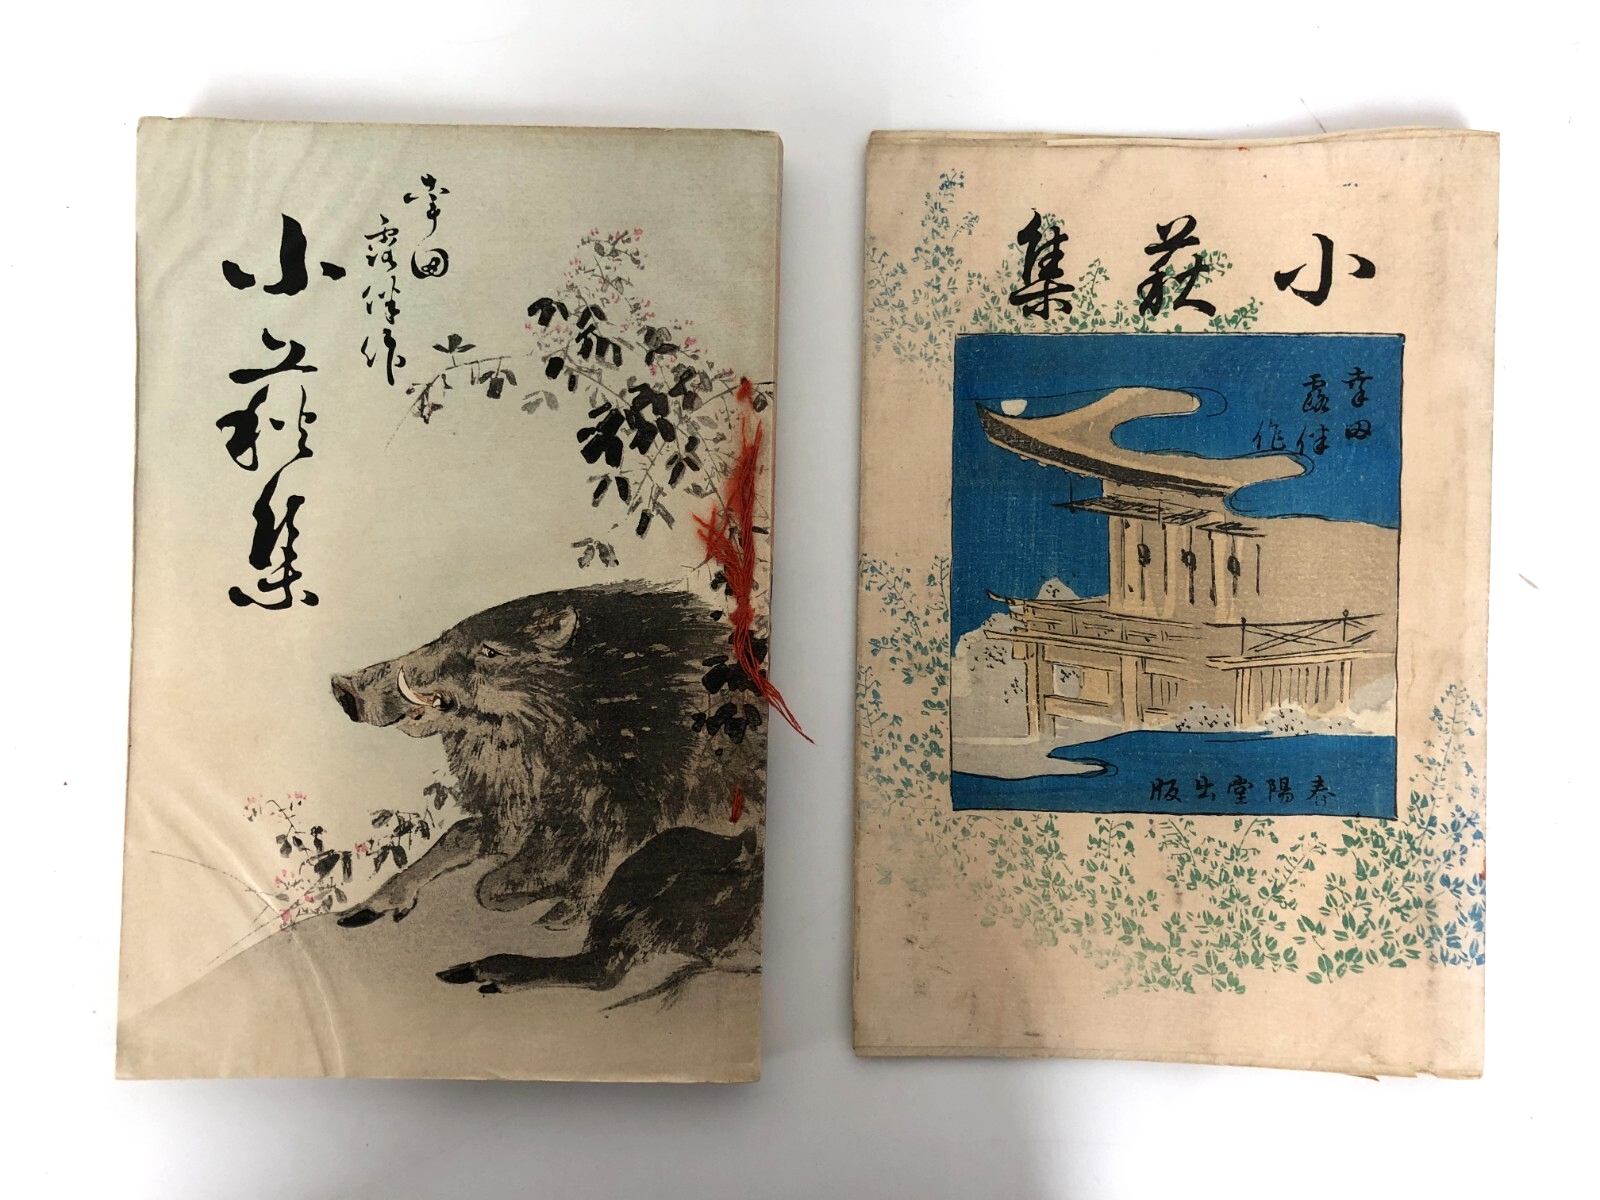 幸田
露伴作
小萩集
小萩集
幸田
露伴
作
春陽堂出版